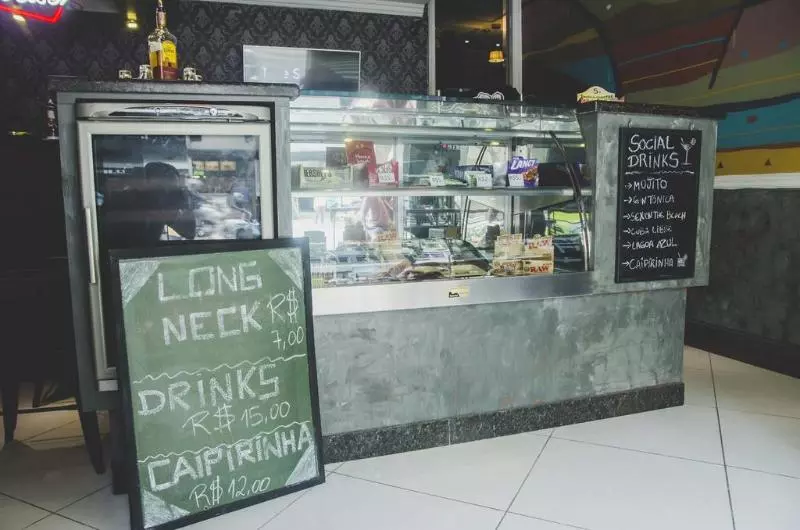 LONG
NECK R$
7,00
DRINKS
R$15,00
CAIPIRINHA
R$12,00
SOCIAL
DRINKS
→ MOJITO
→ GIN TÔNICA
→ SEX ON THE BEACH
→ CUBA LIBRE
→ LAGOA AZUL
→ CAIPIRINHA
HERSHEY'S
LANCY
RAW